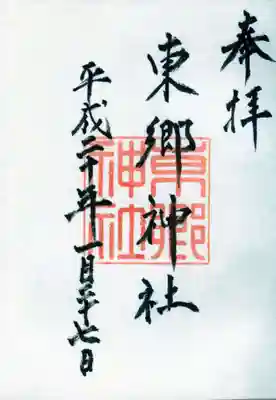 奉拝
東郷神社
東郷神社
平成二十年一月二十七日